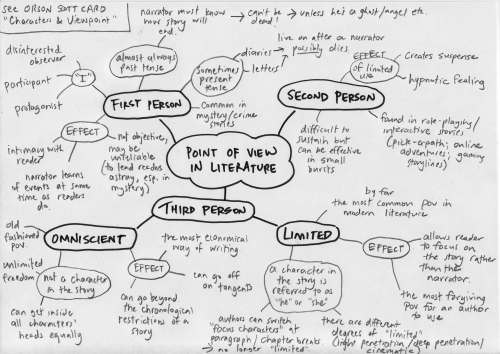 SEE ORSON SCOTT CARD
"Characters & Viewpoint"
narrator must know
how story will
end.
can't be
dead!
unless he's a ghost/angel etc.
almost always
past tense
diaries
letters
live on after a narrator
possibly dies.
Sometimes
present
tense
disinterested
observer
participant
protagonist
"I"
FIRST PERSON
Common in
mystery/crime
stories
EFFECT
intimacy with
reader
narrator learns
of events at same
time as readers
do.
not objective,
may be
unreliable
(to lead readers
astray, esp. in
mystery)
POINT OF VIEW
IN LITERATURE
SECOND PERSON
EFFECT
of limited
use
Creates suspense
hypnotic feeling
difficult to
sustain but can
be effective
in small
bursts
found in role-playing/
interactive stories
(pick-a-path; online
adventures; gaming
storylines)
THIRD PERSON
OMNISCIENT
old
fashioned
POV.
unlimited
freedom
not a character
in the story
can get inside
all characters'
heads equally
EFFECT
the most economical
way of writing
can go off
on tangents
can go beyond
the chronological
restrictions of a
story
LIMITED
by far
the most common pov in
modern literature
EFFECT
allows reader
to focus
on the story
rather
than the
narrator.
the most forgiving
POV for an
author to
use
a character
in the story is
referred to as
"he" or "she"
authors can switch
"focus characters" at
paragraph/chapter breaks
no longer "limited"
there are different
degrees of "limited"
(light penetration/deep penetration/
cinematic)